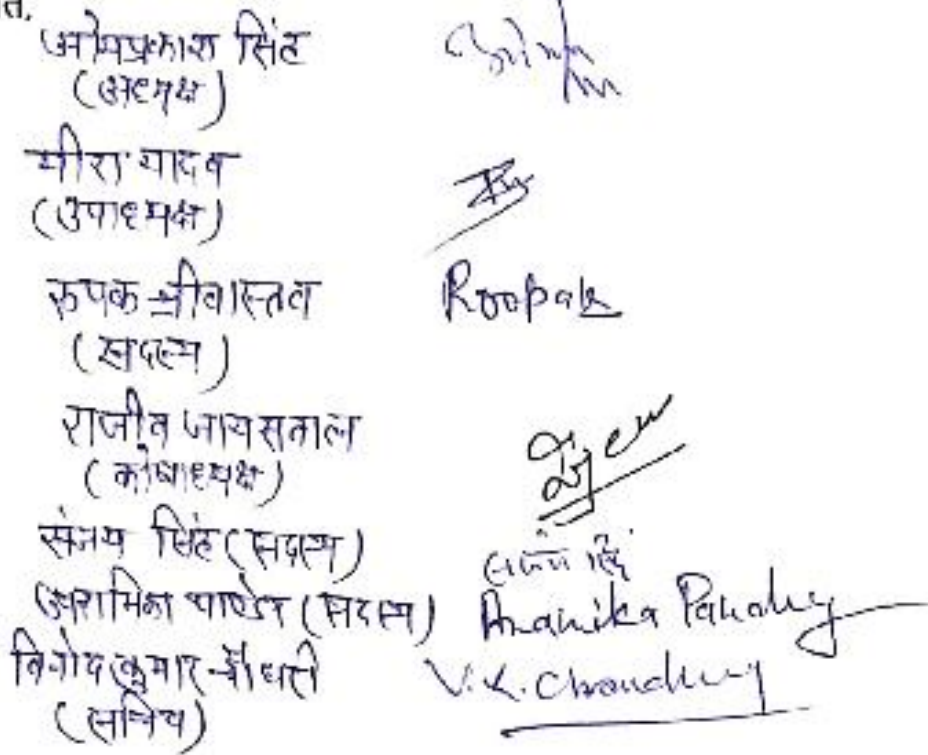 ओमप्रकाश सिंह
(अध्यक्ष)
मीरा यादव
(उपाध्यक्ष)
रूपक श्रीवास्तव Roopak
(सदस्य)
राजीव जायसवाल
(कोषाध्यक्ष)
संजय सिंह (सदस्य) संजय सिंह
अनामिका पाण्डेय (सदस्य) Anamika Pandey
विनोद कुमार चौधरी V.K. Choudhury
(सचिव)